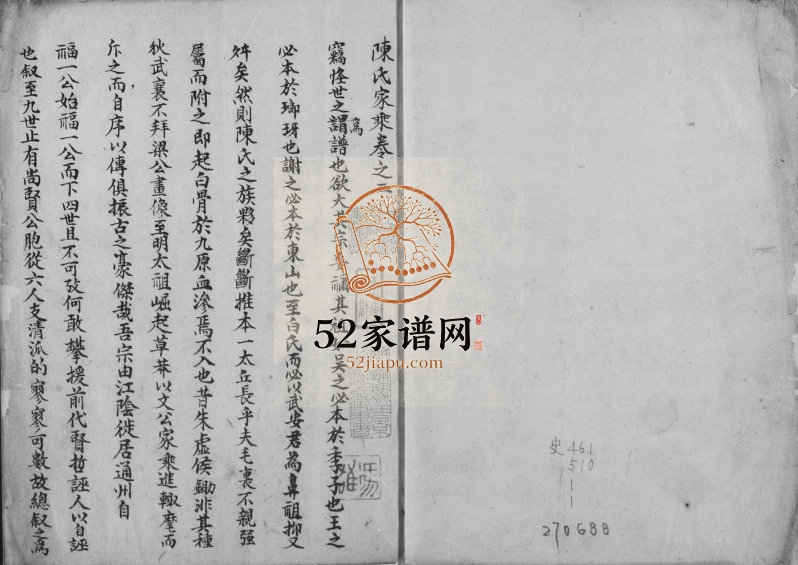 陳氏家乘卷之
竊怪世之為謂譜也欲大其宗 禰其祖 吳之必本於季子也王之
必本於瑯玡也謝之必本於東山也至白氏而必以武安君為鼻祖抑又
舛矣然則陳氏之族夥矣斷斷推本一太丘長乎夫毛裏不親強
屬而附之即起白骨於九原血滲焉不入也昔朱虛侯鋤非其種
狄武襄不拜梁公畫像至明太祖崛起草莽以文公家乘進輙麾而
斥之而自序以傳俱振古之豪傑哉吾宗由江陰徙居通州自
福一公始福一公而下四世且不可攷何敢攀援前代賢哲誣人以自誣
也叙至九世止有尚賢公胞從六人支清派的寥寥可數故總叙之為
52家谱网
52jiapu.com
史 461
510
1
1
270688